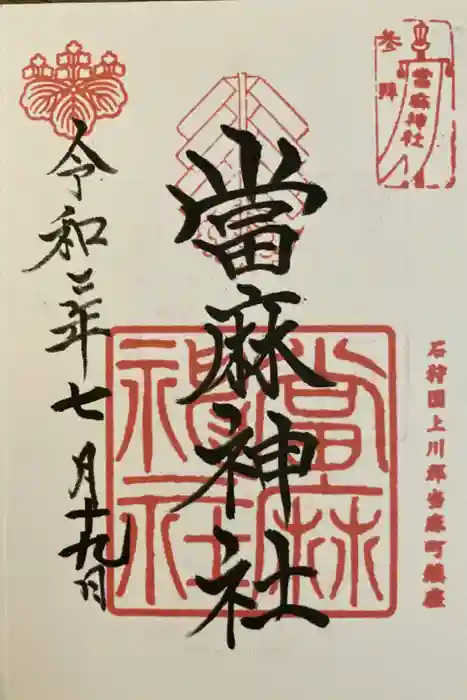 参拝
當麻神社
石狩国上川郡当麻町鎮座
當麻神社
當麻神社
令和二年七月十九日